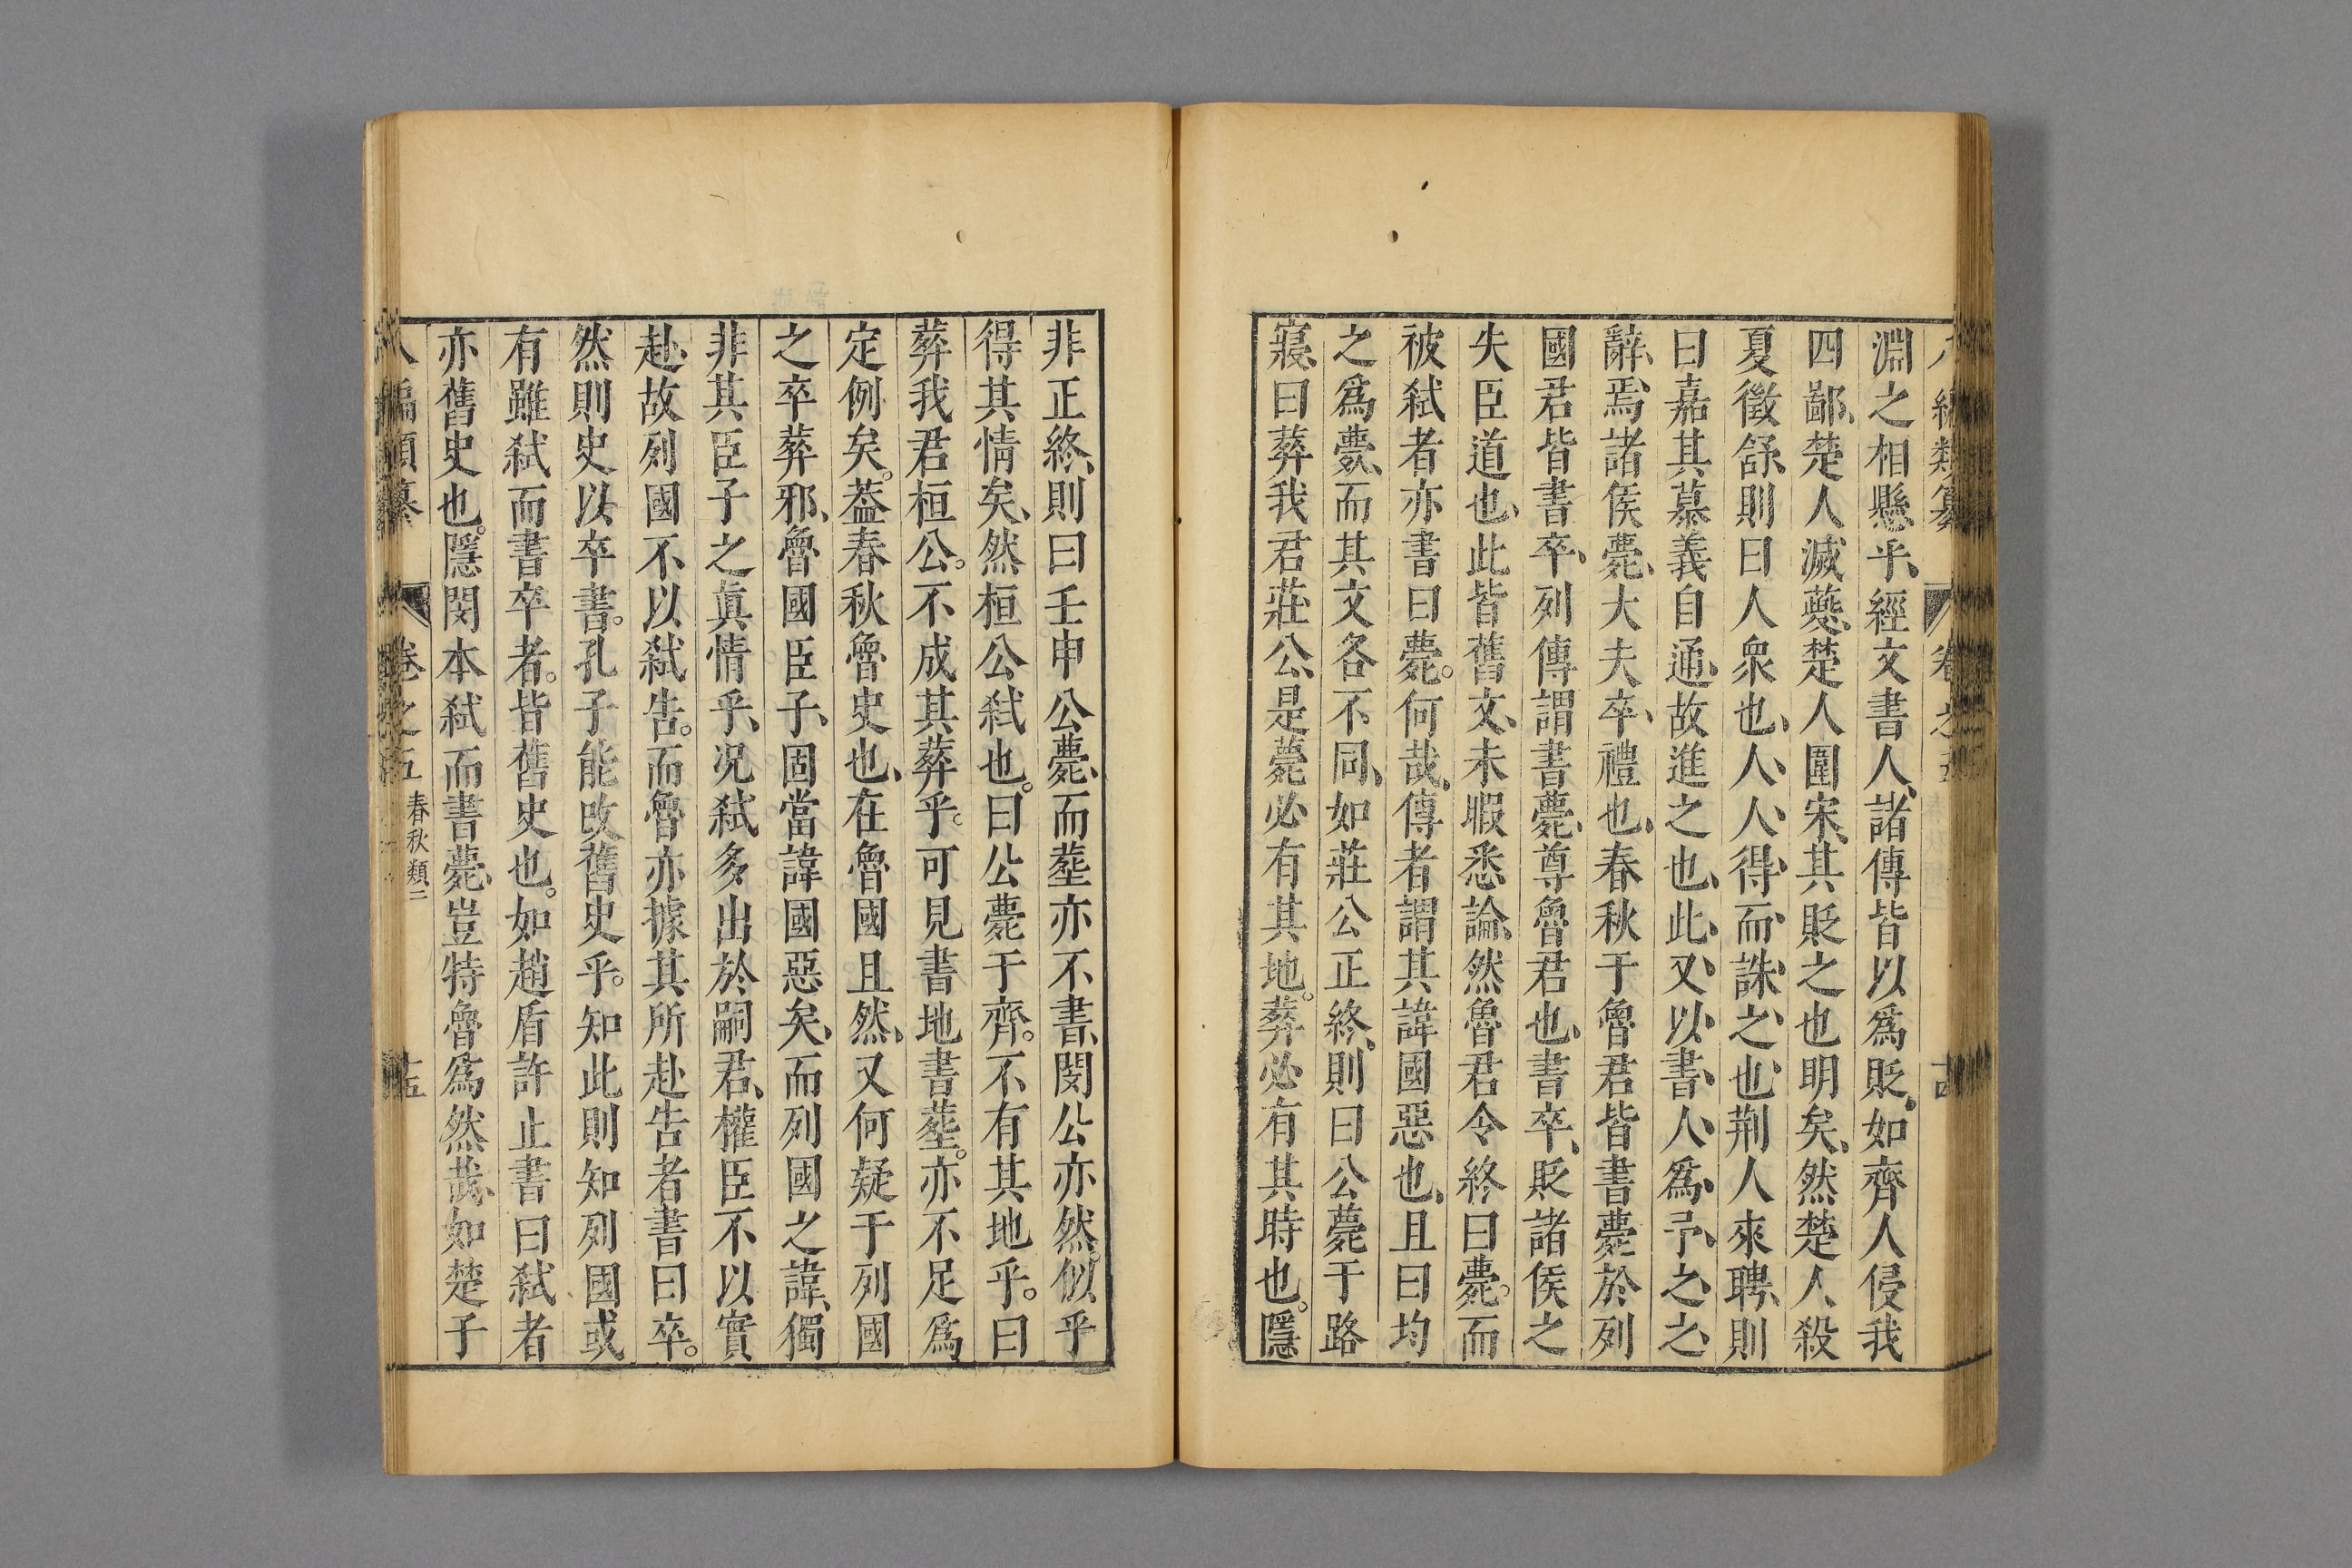 編類纂 卷之五 十四
淵之相懸乎、經文書人、諸傳皆以爲貶。如齊人侵我
四鄙、楚人滅䕫、楚人圍宋、其貶之也明矣、然楚人殺
夏徵舒、則曰人衆也、人人得而誅之也、荆人來聘、則
曰嘉其慕義自通、故進之也、此又以書人爲予之之
辭焉、諸侯薨、大夫卒、禮也、春秋于魯君皆書薨於列
國君皆書卒、列傳謂書薨、尊魯君也、書卒、貶諸侯之
失臣道也、此皆舊文、未暇悉論、然魯君令終曰薨。而
被弑者亦書曰薨。何哉、傳者謂其諱國惡也、且曰均
之爲薨、而其文各不同、如莊公正終、則曰公薨于路
寢、曰葬我君莊公、是薨必有其地。葬必有其時也。隱
非正終、則曰壬申公薨、而塟亦不書、閔公亦然。似乎
得其情矣、然桓公弑也。曰公薨于齊。不有其地乎。曰
葬我君桓公。不成其葬乎。可見書地書塟。亦不足爲
定例矣。葢春秋魯史也、在魯國且然、又何疑于列國
之卒葬邪、魯國臣子、固當諱國惡矣、而列國之諱、獨
非其臣子之眞情乎、况弑多出於嗣君、權臣不以實
赴、故列國不以弑告。而魯亦據其所赴告者書曰卒。
然則史以卒書。孔子能改舊史乎。知此則知列國或
有雖弑而書卒者。皆舊史也。如趙盾許止書曰弑者
亦舊史也。隱閔本弑而書薨、豈特魯爲然哉、如楚子
八編類纂 卷之五 春秋類二 十五